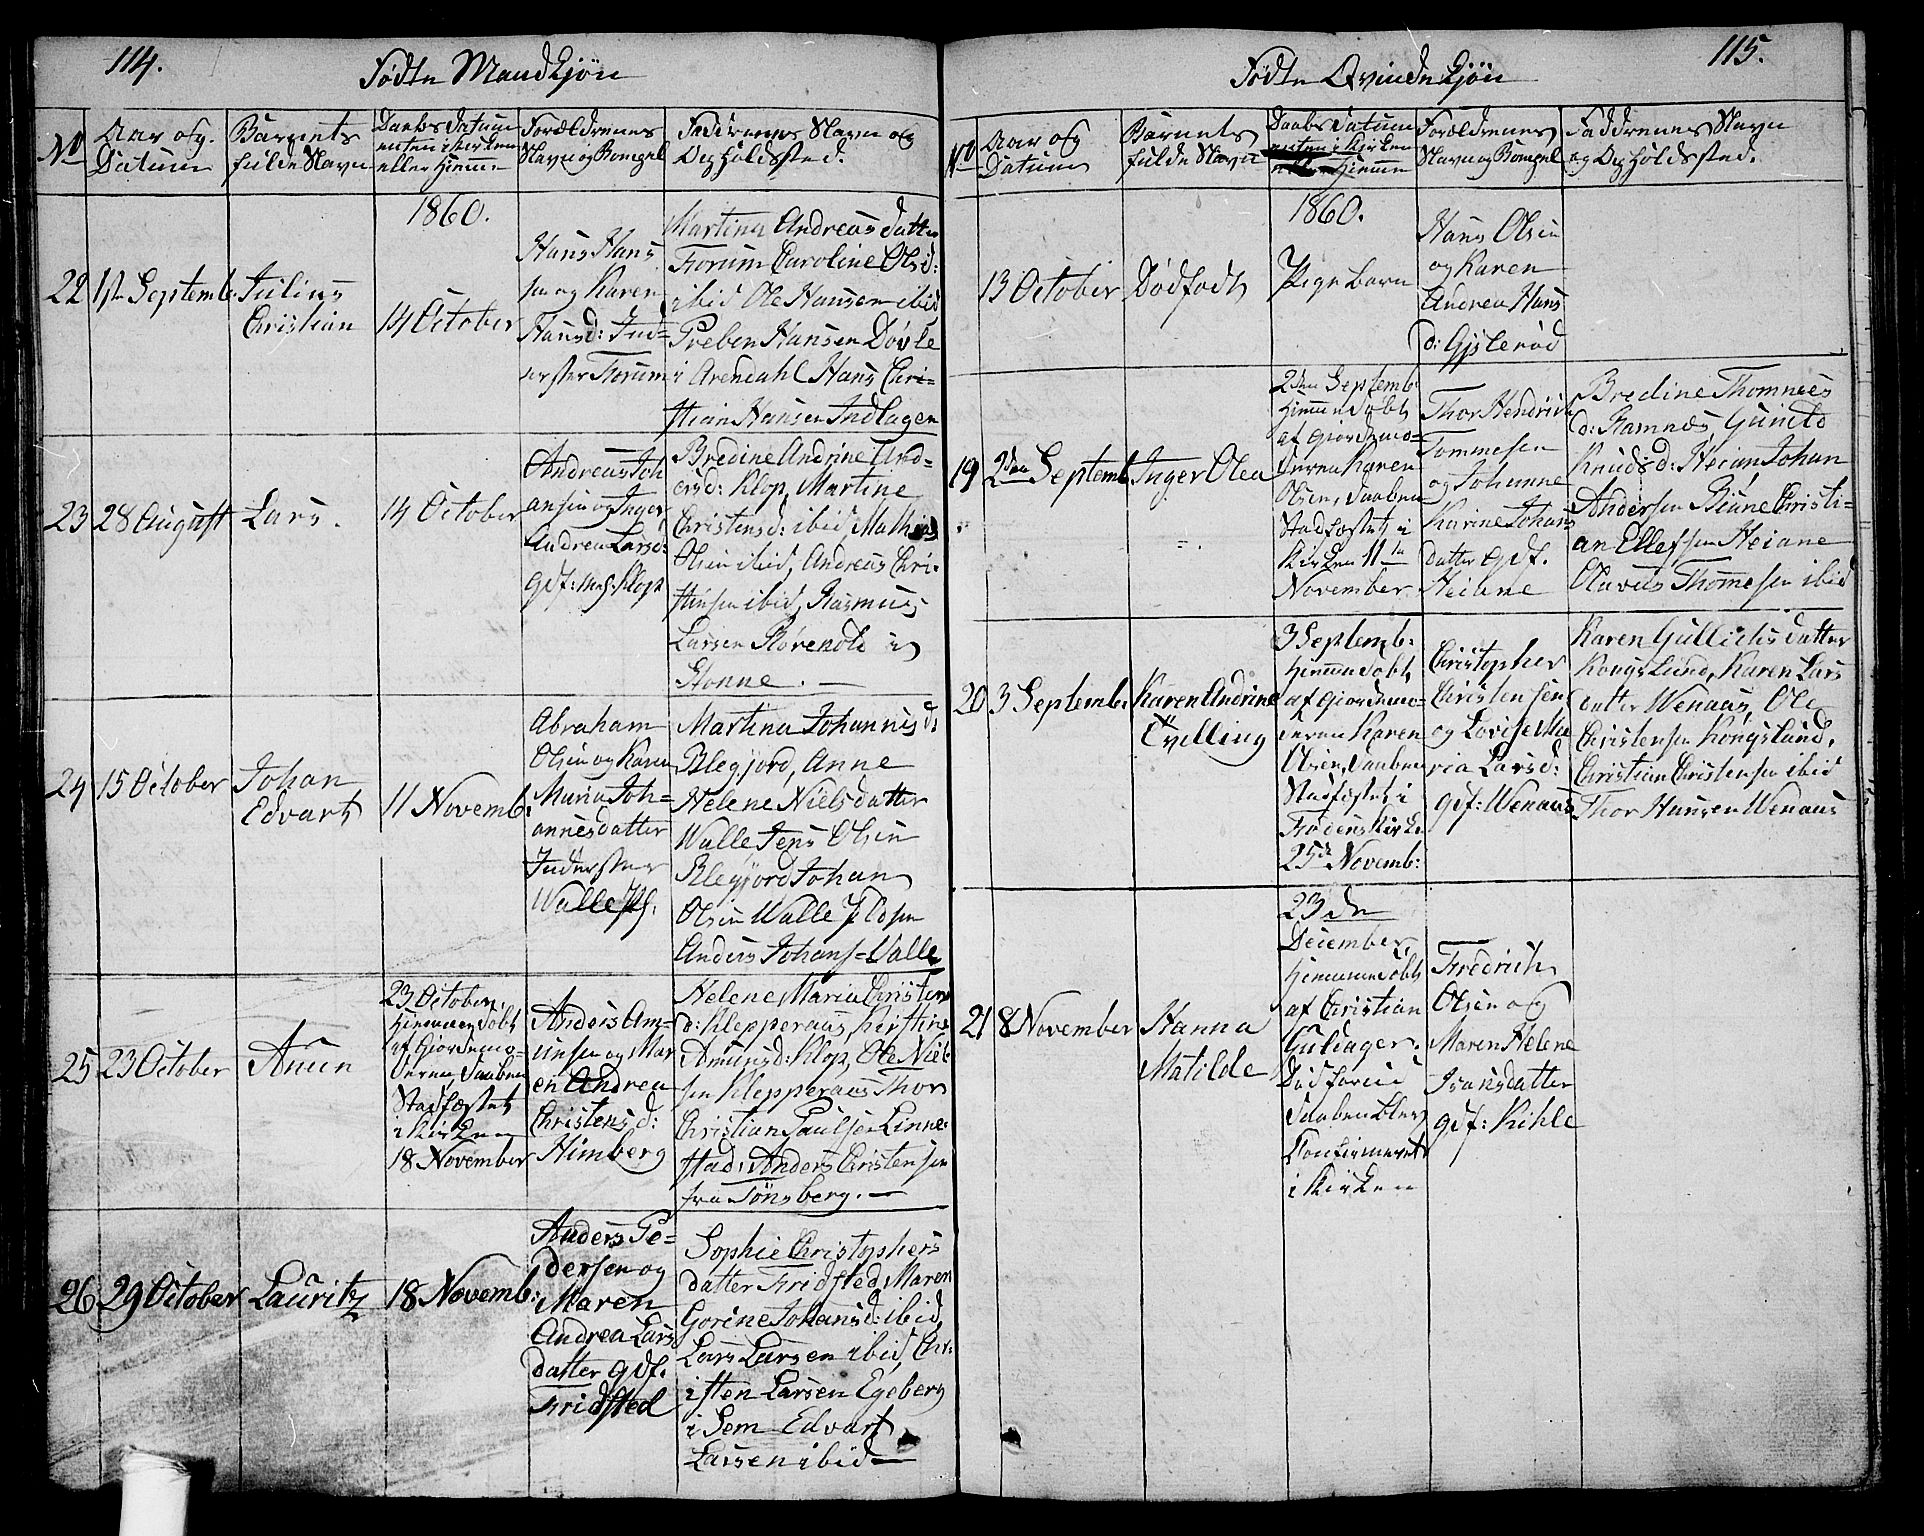 114.
Fødte Mandkjön
No
Aar og
Datum
Barnets
fulde Navn
Daabs Datum
enten i Kirken
eller Hiemme
Forældrenes
Navn og Bopæl
Faddrenes Navn og
Opholdsted.
1860.
22
1ste Septemb.
Julius
Christian
14 October
Hans Hans
sen og Karen
Hansd: Ind-
erster Forum
Martina Andreas datter
Forum Caroline Olsd:
ibid Ole Hansen ibid
Preben Hansen Døvle
i Arendahl Hans Chri-
stian Hansen Indlagen
23
28 August
Lars.
14 October
Andreas Joh
ansen og Inger
Andrea Larsd:
Gdf: Klop
Bredine Andrine And-
ersd: Klop, Martine
Christensd: ibid, Mathias
Olsen ibid, Andreas Chri-
stensen ibid, Rasmus
Larsen i
24
15 October
Johan
Edvart
11 Novemb.
Abraham
Olsen og Karen
Maria Joh-
annesdatter
Inderster
Walle
Martina Johannisd:
Blegjord, Anne
Helene Nielsdatter
Walle Jens Olsen
Blegjord Johan
Olsen Walle
Anders Johans= Valle
25
23 October
Amun
23 October,
Hiemmedøbt
af Giordemo-
deren, Daaben
Stadfæstet
i Kirken
18 November
Anders Am-
unsen og Mar
en Andrea
Christensd:
Himberg
Helene Maria Christens
d: Klepperaas, Kirstine
Amunsd: Klop, Ole Niel-
sen Klepperaas Thor
Christian Paulsen Linne-
stad, Anders Christensen
fra Tönsberg. —
26
29 October
Lauritz
18 Novemb:
Anders Pe-
dersen og
Maren
Andrea Lars
datter gdf.
Fridsted
Sophie Christophers
datter Fridsted, Maren
Gorine Johansd: ibid,
Lars Larsen ibid, Chr-
isten Larsen Egeberg
i Sem Edvart
Larsen ibid—
115.
Fødte Qvindekjön
No
Aar og
Datum
Barnets
fulde Navn
Daabs Datum
enten i Kirken
eller Hiemme
Forældrenes
Navn og Bopæl
Faddrenes Navn
og Opholdsted.
1860.
13 October
Dødfødt
Pigebarn
Hans Olsen
og Karen
Andrea Hans
d: Gjslerød
19
2den Septemb
Inger Olea
2den Septemb:
Hiemmedøbt
af Giordemo-
deren Karen
Olsen, Daaben
Stadfæstet i
Kirken 11te
November
Thor Hendrik
Tommesen
og Johanne
Karine Johans
datter gdf.
Heiene
Bredine Thommes
d: Ramnæs, Gunild
Knudsd: Heian Johan
Andersen Christi-
an Ellefsen Heiane
Olavus Thommesen ibid
20
3 Septemb:
Karen Andrine
Tvilling
3 Septemb:
Hiemmedøbt
af Giordemo-
deren Karen
Olsen, Daaben
Stadfæstet i
Kirke
25de Novemb:
Christopher
Christensen
og Lovise Ma
ria Larsd:
gdf: Wenaas
Karen Gullichsdatter
Kongslund, Karen Lars
datter Wenaas, Ole
Christensen Kongslund,
Christian Christensen ibid
Thor Hansen Wenaas
21
8 November
Hanna
Matilde
23de
December,
Hiemmedøbt
af Christian
Guliager.
Død førend
Daaben blev
Confirmeret
i Kirken
Fredrich
Olsen og
Maren Helene
Iversdatter
gdf: Kihle